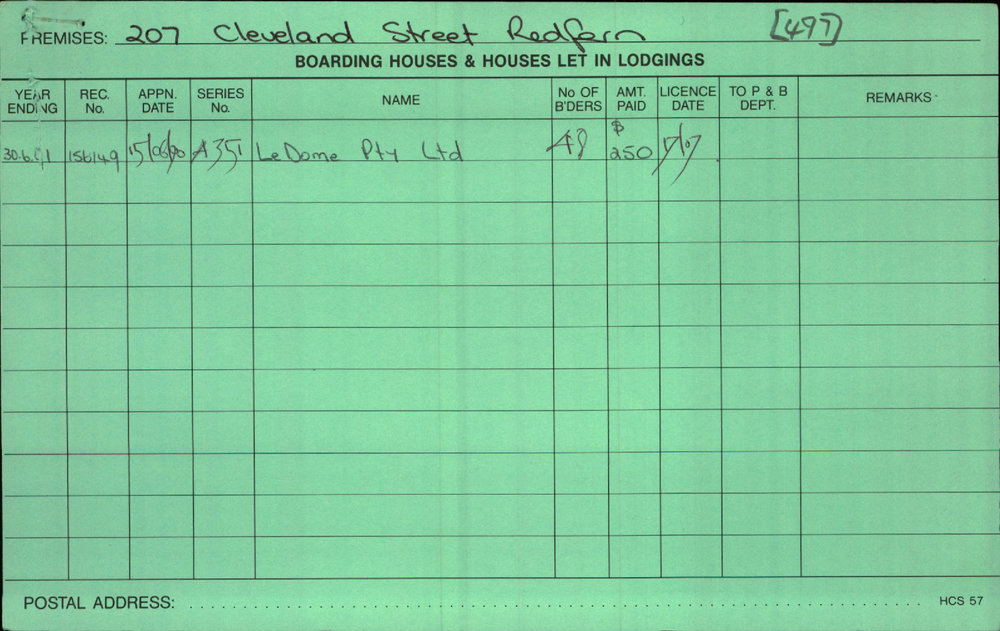 PREMISES: 207 Cleveland Street Redfern [497]
BOARDING HOUSES & HOUSES LET IN LODGINGS
YEAR ENDING REC. No. APPN. DATE SERIES No. NAME No OF B'DERS AMT. PAID LICENCE DATE TO P & B DEPT. REMARKS
30.6.91 156149 15/06/90 A351 Le Dome Pty Ltd 48 $250
POSTAL ADDRESS: HCS 57